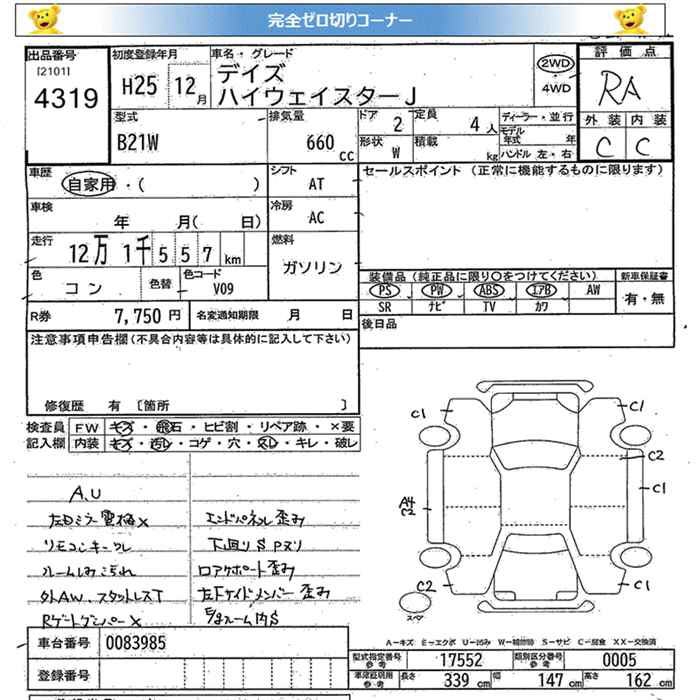 完全ゼロ切りコーナー
出品番号
[2101]
4319
初度登録年月
H25 12月
車名・グレード
デイズ
ハイウェイスターJ
2WD
4WD
評価点
RA
外装 内装
C C
型式
B21W
排気量
660 cc
ドア 2
定員 4人
形状 W
積載 kg
ディーラー・並行
モデル年式 年
ハンドル 左・右
車歴
自家用・( )
シフト
AT
セールスポイント (正常に機能するものに限ります)
車検
年 月( 日)
冷房
AC
走行
12万 1千 5 5 7 km
燃料
ガソリン
色
コン
色替
色コード
V09
装備品 (純正品に限り〇をつけてください)
PS PW ABS エアB AW
SR ナビ TV カワ
新車保証書
有・無
R券 7,750 円
名変通知期限 月 日
後日品
注意事項申告欄 (不具合内容等は具体的に記入して下さい)
修復歴 有 〔箇所 〕
検査員記入欄
FW キズ・飛石・ヒビ割・リペア跡・×要
内装 キズ・汚レ・コゲ・穴・スレ・キレ・破レ
A.U
左Dミラー電格×
リモコンキーワレ
ルームしみ汚れ
外AW.スタットレスT
エンドパネル歪み
下回りS Pヌリ
ロアサポート歪み
左Fサイドメンバー歪み
C1
C1
C2
C1
A4
C2
C2
C1
スペア
A-キズ E-エクボ U-凹み W-補修跡 S-サビ C-腐食 XX-交換済
車台番号 0083985
登録番号
型式指定番号 参考 17552
類別区分番号 参考 0005
車庫証明用 参考 長さ 339 cm 幅 147 cm 高さ 162 cm